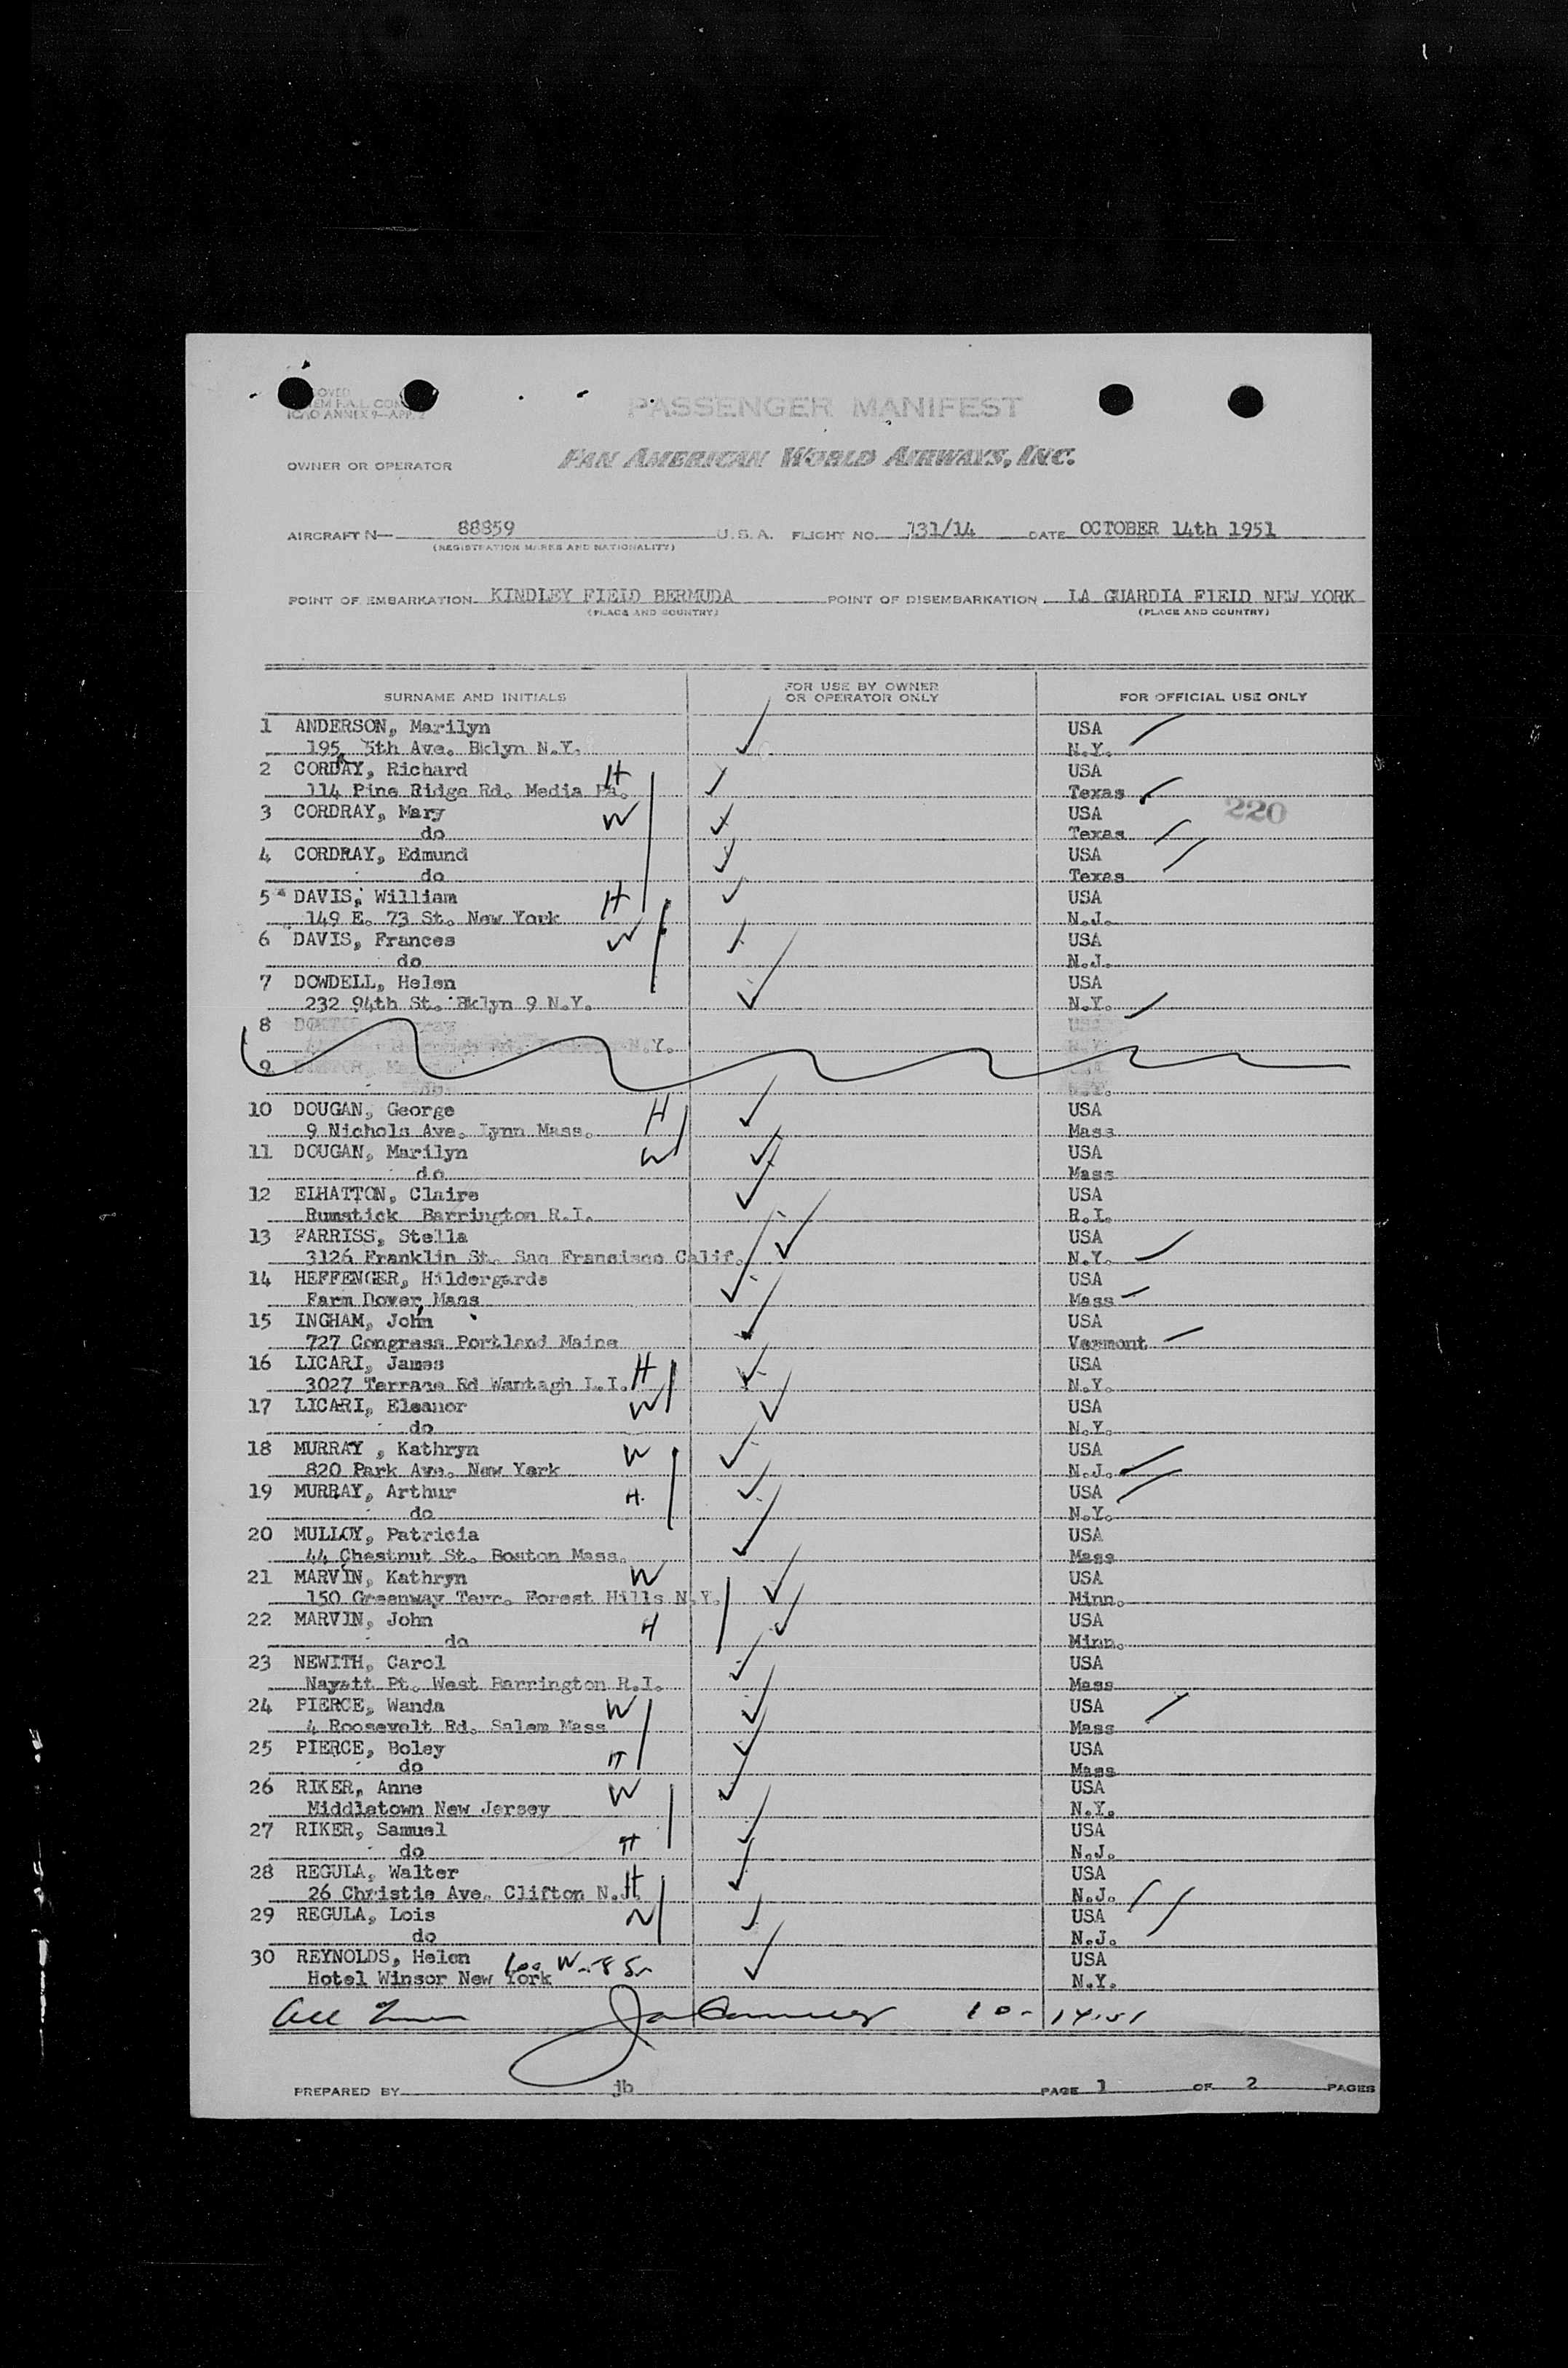 PASSENGER MANIFEST
ICAO ANNEX 9—APP.
OWNER OR OPERATOR PAN AMERICAN WORLD AIRWAYS, INC.
AIRCRAFT N— 88859 U.S.A. FLIGHT NO. 131/14 DATE OCTOBER 14th 1951
(REGISTRATION MARKS AND NATIONALITY)
POINT OF EMBARKATION KINDLEY FIELD BERMUDA POINT OF DISEMBARKATION LA GUARDIA FIELD NEW YORK
(PLACE AND COUNTRY) (PLACE AND COUNTRY)
SURNAME AND INITIALS FOR USE BY OWNER OR OPERATOR ONLY FOR OFFICIAL USE ONLY
1 ANDERSON, Marilyn USA
195 5th Ave. Bklyn N.Y. N.Y.
2 CORDAY, Richard H USA
R
114 Pine Ridge Rd. Media Pa. Texas
220
3 CORDRAY, Mary W USA
do Texas
4 CORDRAY, Edmund USA
do Texas
5 DAVIS, William H USA
149 E. 73 St. New York N.J.
6 DAVIS, Frances W USA
do N.J.
7 DOWDELL, Helen USA
232 94th St. Bklyn 9 N.Y. N.Y.
8 USA
N.Y.
9
do
10 DOUGAN, George H USA
9 Nichols Ave. Lynn Mass. Mass
11 DOUGAN, Marilyn W USA
do Mass
12 ELHATTON, Claire USA
Rumstick Barrington R.I. R.I.
13 FARRISS, Stella USA
3126 Franklin St. San Francisco Calif. N.Y.
14 HEFFENGER, Hildergarde USA
Farm Dover, Mass Mass
15 INGHAM, John USA
727 Congress Portland Maine Vermont
16 LICARI, James H USA
3027 Terrace Rd Wantagh L.I. N.Y.
17 LICARI, Eleanor W USA
do N.Y.
18 MURRAY , Kathryn W USA
820 Park Ave. New York N.J.
19 MURRAY, Arthur H USA
do N.Y.
20 MULLOY, Patricia USA
44 Chestnut St. Boston Mass. Mass
21 MARVIN, Kathryn W USA
150 Greenway Terr. Forest Hills N.Y. Minn.
22 MARVIN, John H USA
do Minn.
23 NEWITH, Carol USA
Nayatt Pt. West Barrington R.I. Mass
24 PIERCE, Wanda W USA
4 Roosevelt Rd. Salem Mass Mass
25 PIERCE, Boley H USA
do Mass
26 RIKER, Anne W USA
Middletown New Jersey N.Y.
27 RIKER, Samuel H USA
do N.J.
28 REGULA, Walter H USA
26 Christie Ave. Clifton N.J. N.J.
29 REGULA, Lois W USA
do N.J.
30 REYNOLDS, Helen 100 W USA
Hotel Winsor New York N.Y.
All 10-14-51
PREPARED BY jb PAGE 1 OF 2 PAGES